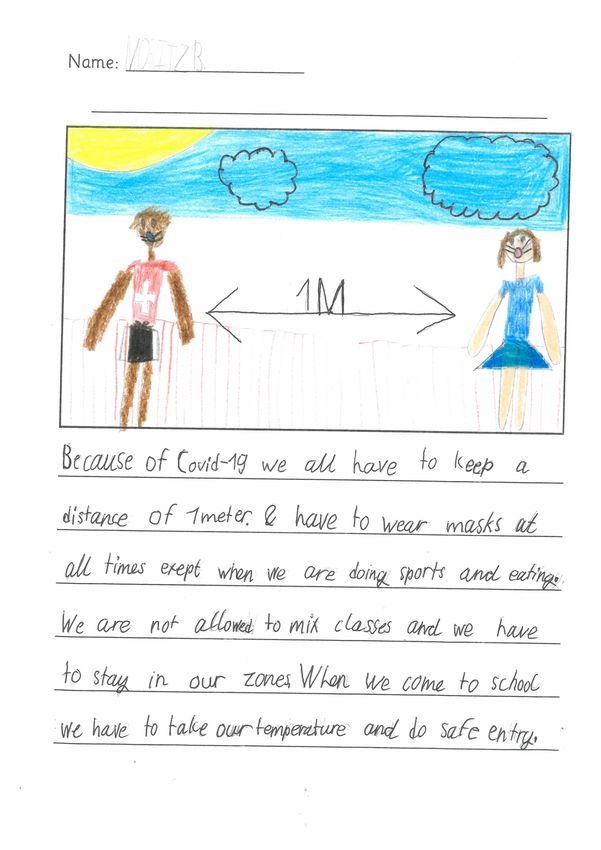 Name: MORITZ B.
1M
Because of Covid-19 we all have to keep a
distance of 1meter. & have to wear masks at
all times exept when we are doing sports and eating.
We are not allowed to mix classes and we have
to stay in our zones. When we come to school
we have to take our temperature and do safe entry.